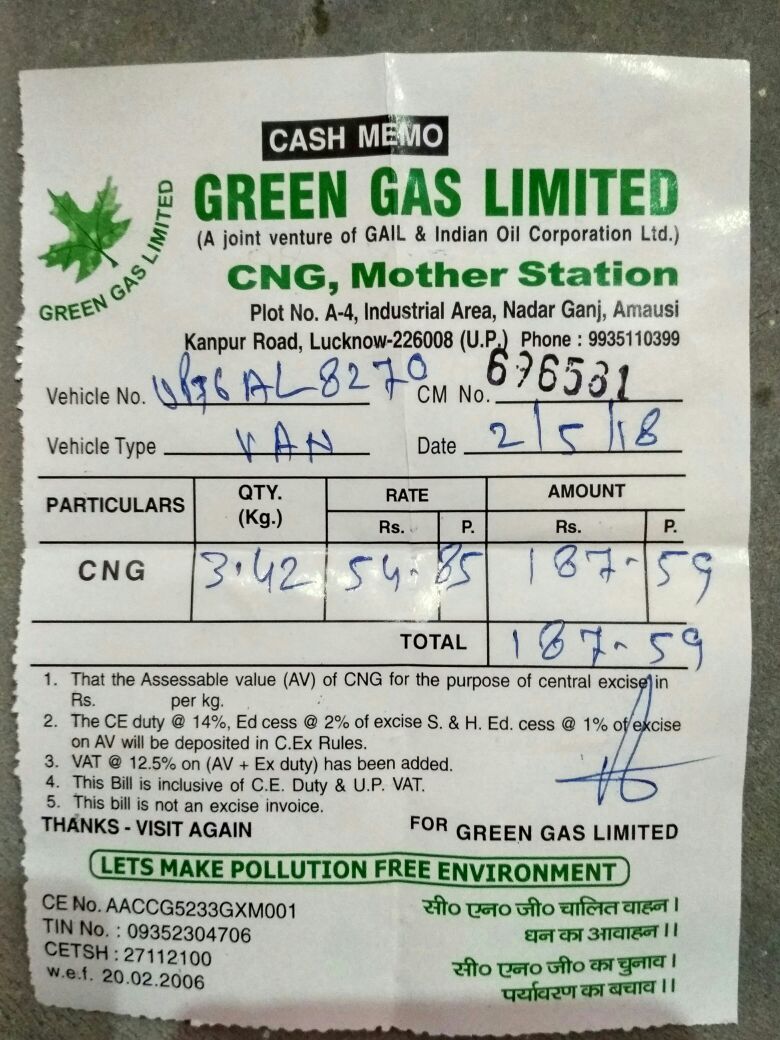 CASH MEMO
GREEN GAS LIMITED
GREEN GAS LIMITED
(A joint venture of GAIL & Indian Oil Corporation Ltd.)
CNG, Mother Station
Plot No. A-4, Industrial Area, Nadar Ganj, Amausi
Kanpur Road, Lucknow-226008 (U.P.) Phone : 9935110399
Vehicle No. UP76AL8270 CM No. 676531
Vehicle Type VAN Date 2/5/18
PARTICULARS QTY. (Kg.) RATE Rs. P. AMOUNT Rs. P.
CNG 3.42 54-85 187-59
TOTAL 187-59
1. That the Assessable value (AV) of CNG for the purpose of central excise in
Rs. per kg.
2. The CE duty @ 14%, Ed cess @ 2% of excise S. & H. Ed. cess @ 1% of excise
on AV will be deposited in C.Ex Rules.
3. VAT @ 12.5% on (AV + Ex duty) has been added.
4. This Bill is inclusive of C.E. Duty & U.P. VAT.
5. This bill is not an excise invoice.
THANKS - VISIT AGAIN FOR GREEN GAS LIMITED
LETS MAKE POLLUTION FREE ENVIRONMENT
CE No. AACCG5233GXM001
TIN No. : 09352304706
CETSH : 27112100
w.e.f. 20.02.2006
सी० एन० जी० चालित वाहन ।
धन का आवाहन ।।
सी० एन० जी० का चुनाव ।
पर्यावरण का बचाव ।।